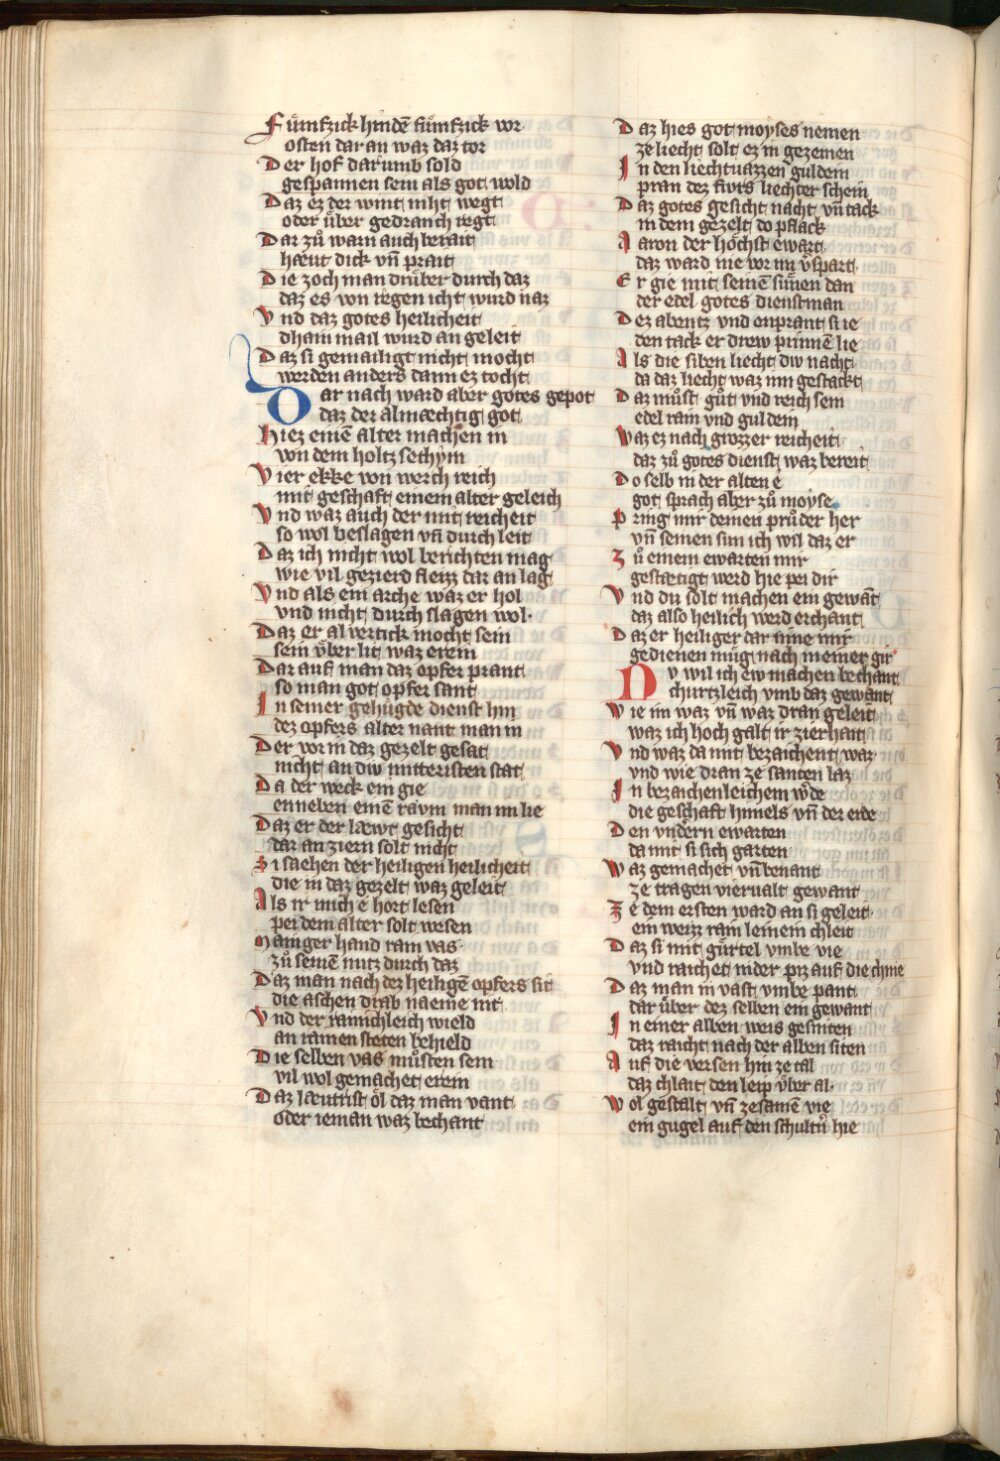 Fůmfzick hindē fůmfzick vor
osten dar an waz daz tor
Der hof darumb sold
gespannen sein als got wold
Daz ez der wint niht wegt
oder über gedranch regt
Dar zů warn auch berait
haeut dick vn̄ prait
Die zoch man drüber durch daz
daz es von regen icht wurd naz
Vnd daz gotes heilicheit
dhain mail wurd an geleit
Daz si gemailigt nicht mocht
werden anders dann ez tocht
Dar nach ward aber gotes gepot
daz der almaechtig got
Hiez einē alter machen in
von dem holtz sechym
Vier ekke von werch reich
mit geschaft einem alter geleich
Vnd waz auch der mit reicheit
so wol beslagen vn̄ durch leit
Daz ich nicht wol berichten mag
wie vil gezierd fleizz dar an lag
Vnd als ein arche waz er hol
vnd nicht durch slagen wol·
Daz er al vertick mocht sein
sein vber lit waz erein
Dar auf man daz opfer prant
so man got opfer sant
In seiner gehügde dienst hin
dez opfers alter nant man in
Der vor in daz gezelt gesat
nicht an diw mitteristen stat
Da der weck ein gie
enneben einē ravm man im lie
Daz er der laewt gesicht
dar an ziern solt nicht
Si saehen der heiligen heilicheit
die in daz gezelt waz geleit
Als ir mich e hort lesen
pei dem alter solt wesen
Maniger hand rain vas
zů seinē nutz durch daz
Daz man nach dez heiligē opfers sit
die aschen drab naeme mit
Vnd der rainichleich wield
an rainen steten behield
Die selben vas můsten sein
vil wol gemachet erein
Daz laeutrist öl daz man vant
oder ieman waz bechant
Daz hies got moyses nemen
ze liecht solt ez in gezemen
In den liechtuazzen guldein
pran dez fivrs liechter schein
Daz gotes gesicht nacht vn̄ tack
in dem gezelt do pflack
Aaron der höchst ewart
daz ward nie vor im v̄spart
Er gie mit seinē sünen dan
der edel gotes dienstman
Dez abentz vnd enprant si ie
den tack er drew prinnē lie
Als die siben liecht diw nacht
da daz liecht waz inn gestackt
Daz můst gůt vnd reich sein
edel rain vnd guldein
Waz ez nach grozzer reicheit
daz zů gotes dienst waz bereit
Do selb in der alten e
got sprach aber zů moyse
Pring mir deinen průder her
vn̄ seinen sun ich wil daz er
Zů einem ewarten mir
gestaetigt werd hie pei dir
Vnd du solt machen ein gewāt
daz also heilich werd erchant
Daz er heiliger dar inne mir
gedienen müg nach meiner gir
Nv wil ich ew machen bechant
churtzleich vmb daz gewant
Wie im waz vn̄ waz dran geleit
waz ich hoch galt ir zierhait
Vnd waz da mit bezaichent waz
vnd wie dran ze santen laz
In bezaichenleichem w̄de
die geschaft himels vn̄ der erde
Den vndern ewarten
da mit si sich garten
Waz gemachet vn̄ benant
ze tragen viervalt gewant
Ze dem ersten ward an si geleit
ein weizz rain leinein chleit
Daz si mit gürtel vmbe vie
vnd raichet nider piz auf die chnie
Daz man in vast vmbe pant
dar über dez selben ein gewant
In einer alben weis gesniten
daz raicht nach der alben siten
Auf die versen hin ze tal
daz chlait den leip vber al·
Wol gestalt vn̄ zesamē vie
ein gugel auf den schultn̄ hie